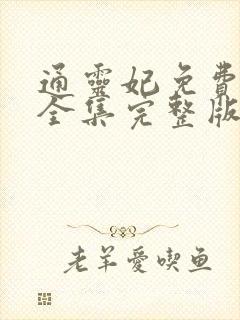 通靈妃免費
全集完整版
老羊愛喫鱼